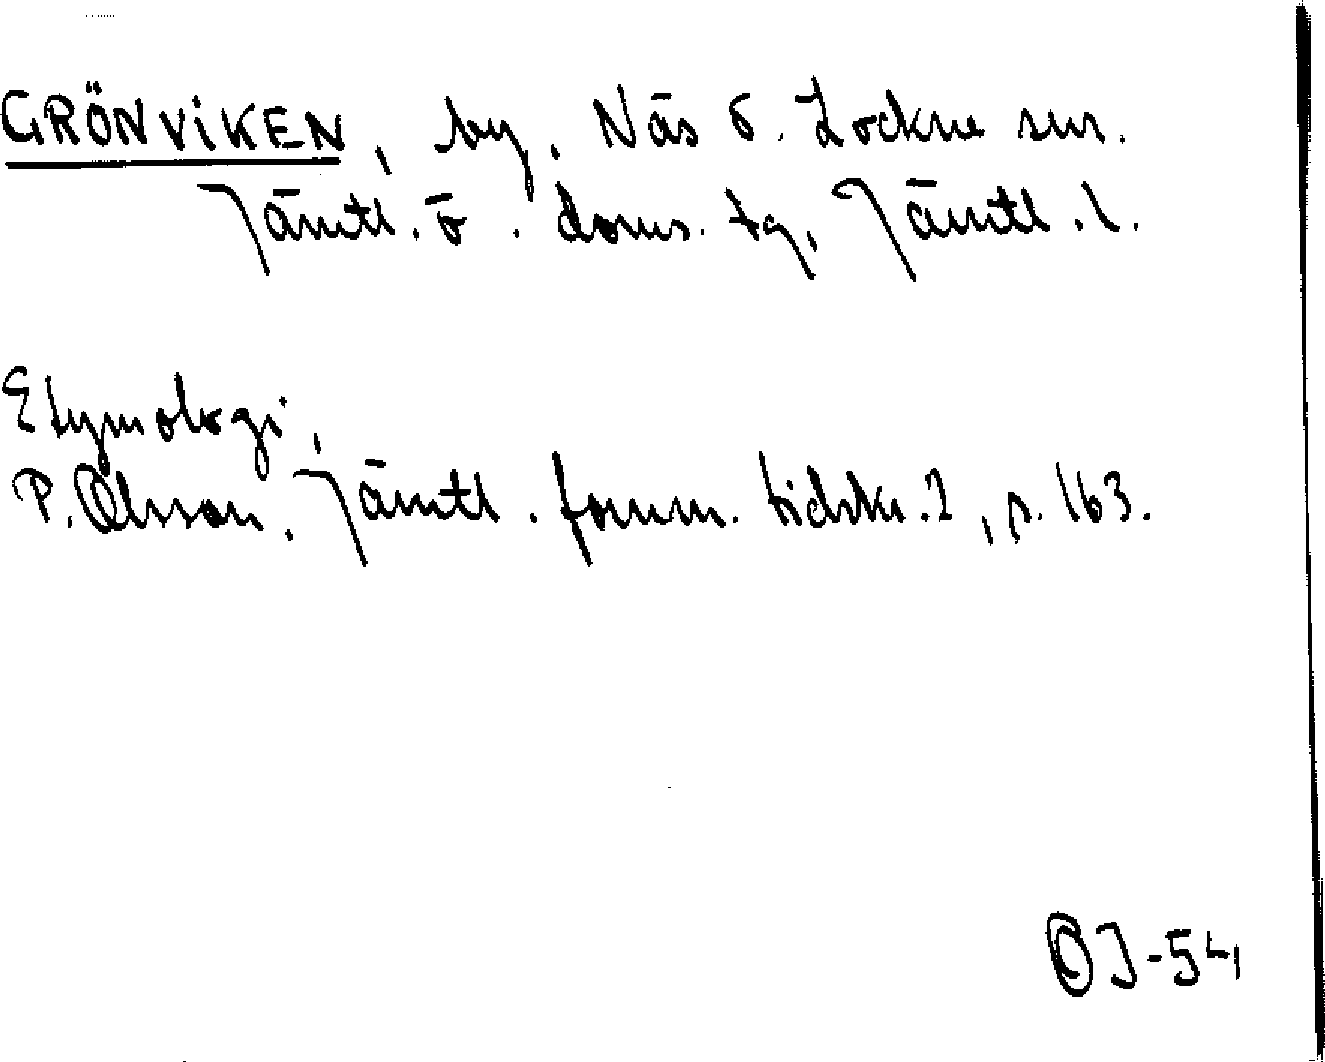 GRÖNVIKEN, by, Näs o. Lockne snr.
Jämtl. ö. doms. tg, Jämtl. l.
Etymologi,
P. Olsson, Jämtl. fornm. tidskr. 2, s. 163.
OJ-54